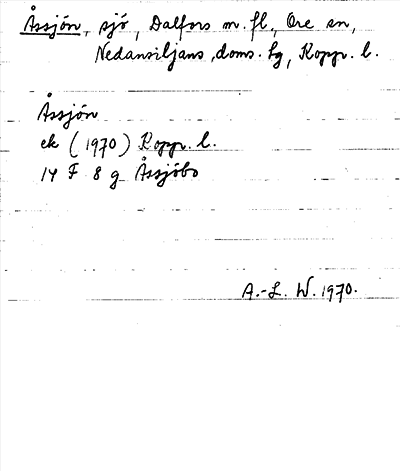 Åssjön, sjö, Dalfors m. fl., Ore sn,
Nedansiljans doms. hg, Kopp. l.
Åssjön
ek (1970) Kopp. l.
14 F 8 g Åssjöbo
A.-L. W. 1970.